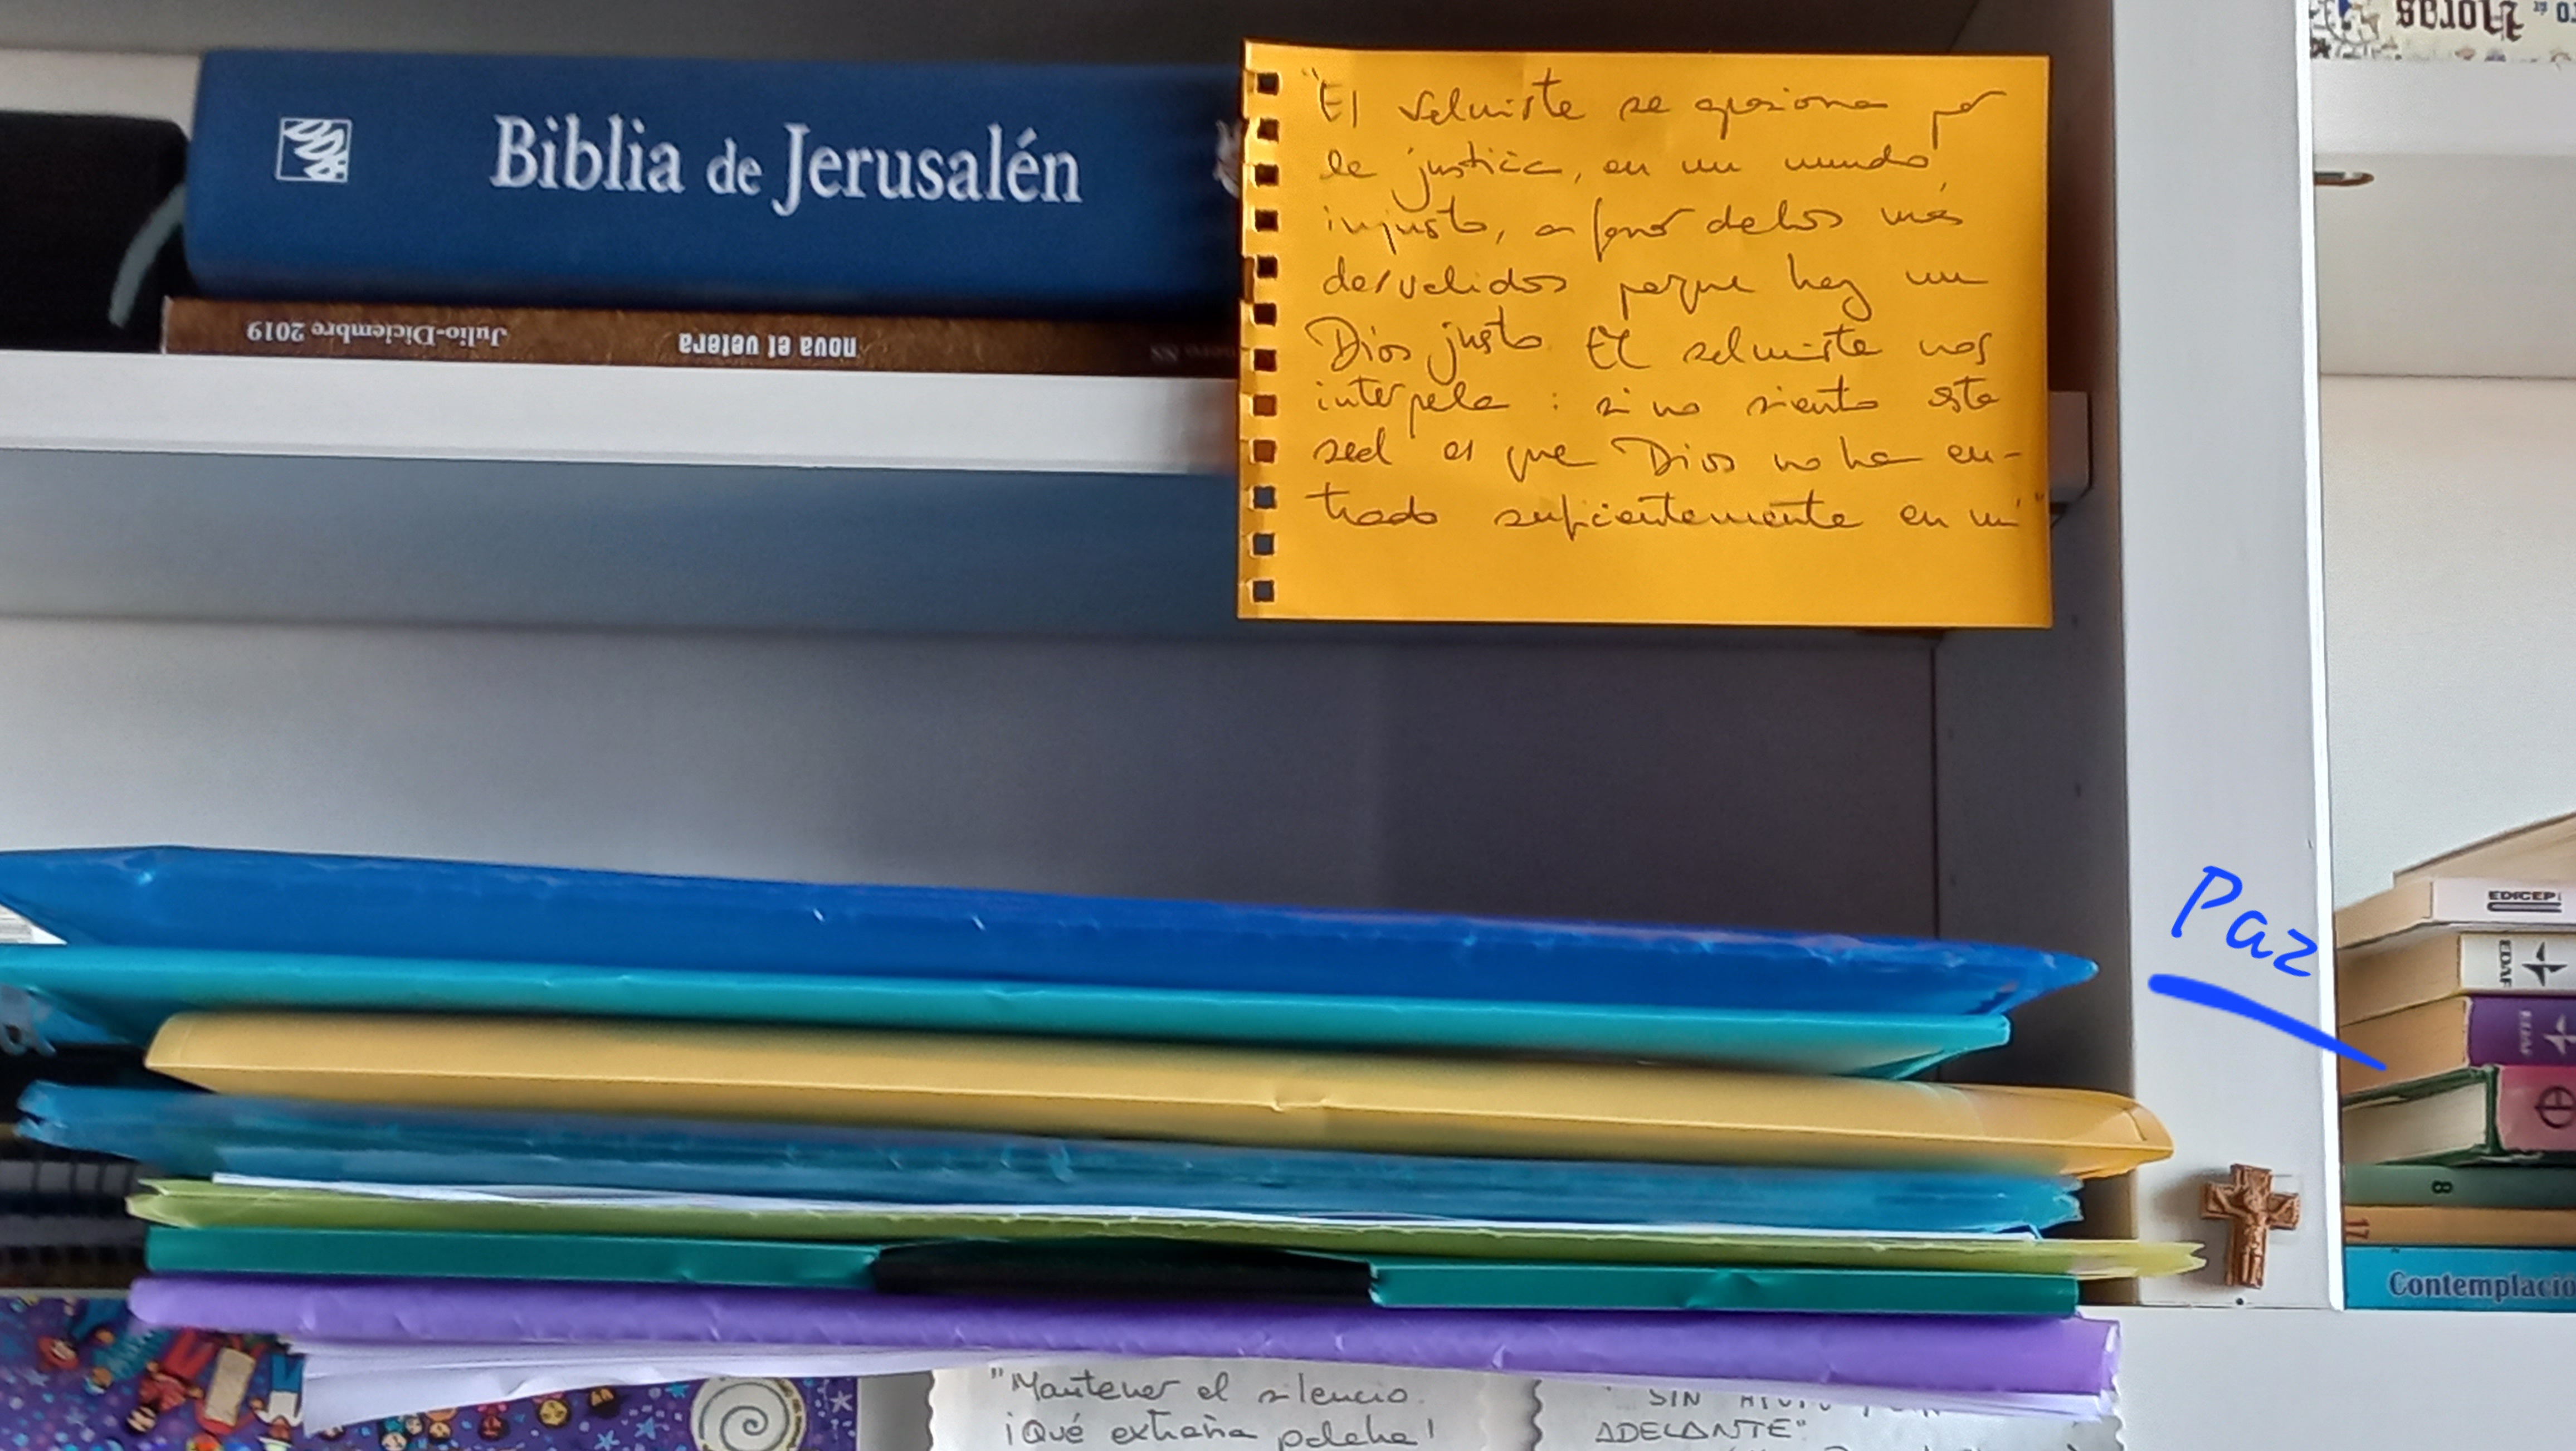 Biblia de Jerusalén
nova et vetera
Julio-Diciembre 2019
"El salmista se apasiona por
la justicia, en un mundo
injusto, a favor de los más
desvalidos porque hay un
Dios justo El salmista nos
interpela: si no siento esta
sed es que Dios no ha en-
trado suficientemente en mí"
Horas
Paz
EDICEP
EDAF
EDAF
8
17
Contemplacio
"Mantener el silencio.
¡Qué extraña palabra!
SIN
ADELANTE"